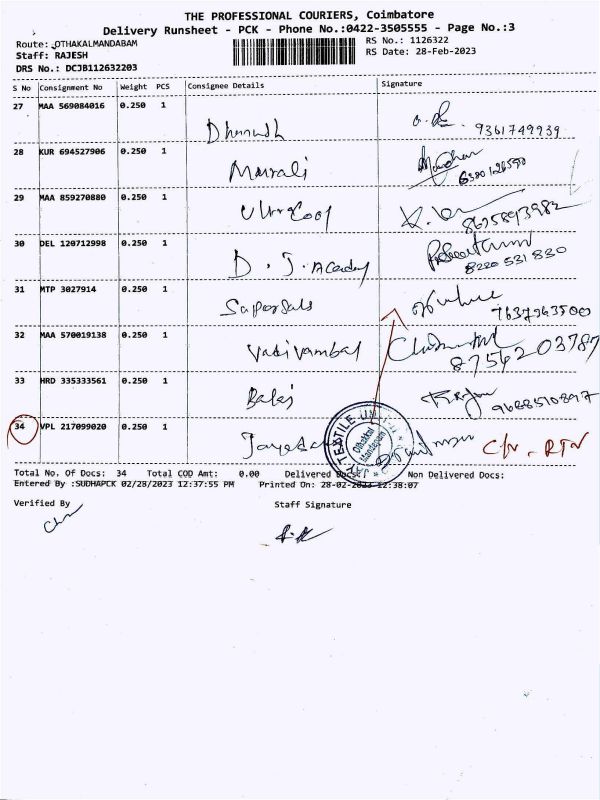 THE PROFESSIONAL COURIERS, Coimbatore
Delivery Runsheet - PCK - Phone No.:0422-3505555 - Page No.:3
Route: OTHAKALMANDABAM
RS No.: 1126322
Staff: RAJESH
RS Date: 28-Feb-2023
DRS No.: DCJB112632203
S No Consignment No Weight PCS Consignee Details Signature
27 MAA 569084016 0.250 1 9361749939
28 KUR 694527906 0.250 1 Murali
29 MAA 859270880 0.250 1 8675893982
30 DEL 120712998 0.250 1 D. J. Academy 8220 531 830
31 MTP 3027914 0.250 1
32 MAA 570019138 0.250 1 Vadivambal 87542 03787
33 HRD 335333561 0.250 1 Balaj 9688510897
34 VPL 217099020 0.250 1 C/N - RTN
TEXTILE UNIT-II
Othakkal Mandapam
Total No. Of Docs: 34 Total COD Amt: 0.00 Delivered Docs: Non Delivered Docs:
Entered By :SUDHAPCK 02/28/2023 12:37:55 PM Printed On: 28-02-2023 12:38:07
Verified By Staff Signature